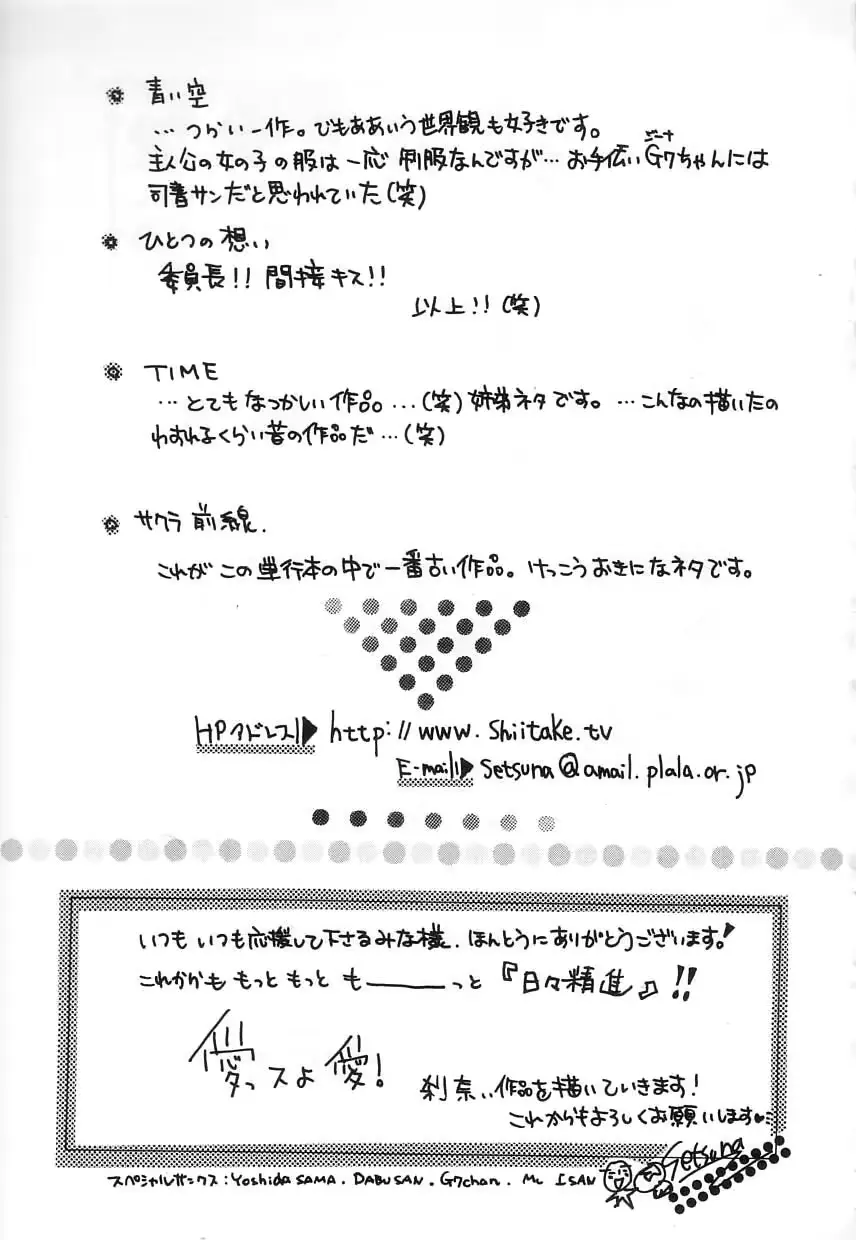 青い空
…つらい一作。でもああいう世界観も好きです。
主人公の女の子の服は一応制服なんですが…お手伝いG7ちゃんには
ジーナ
司書サンだと思われていた(笑)
ひとつの想い
委員長!! 間接キス!!
以上!!(笑)
TIME
…とてもなつかしい作品…(笑)姉弟ネタです。…こんなの描いたの
わすれるくらい昔の作品だ…(笑)
サクラ前線.
これがこの単行本の中で一番古い作品。けっこうおきになネタです。
HPアドレス http://www.shiitake.tv
E-mail setsuna@amail.plala.or.jp
いつもいつも応援して下さるみな様、ほんとうにありがとうございます!
これからも もっと もっと も――っと『日々精進』!!
愛っスよ 愛!
刹奈、、作品を描いていきます!
これからもよろしくお願いします♥
Setsuna
スペシャルサンクス:Yoshida SAMA. DABUSAN. G7chan. Mc ISAN